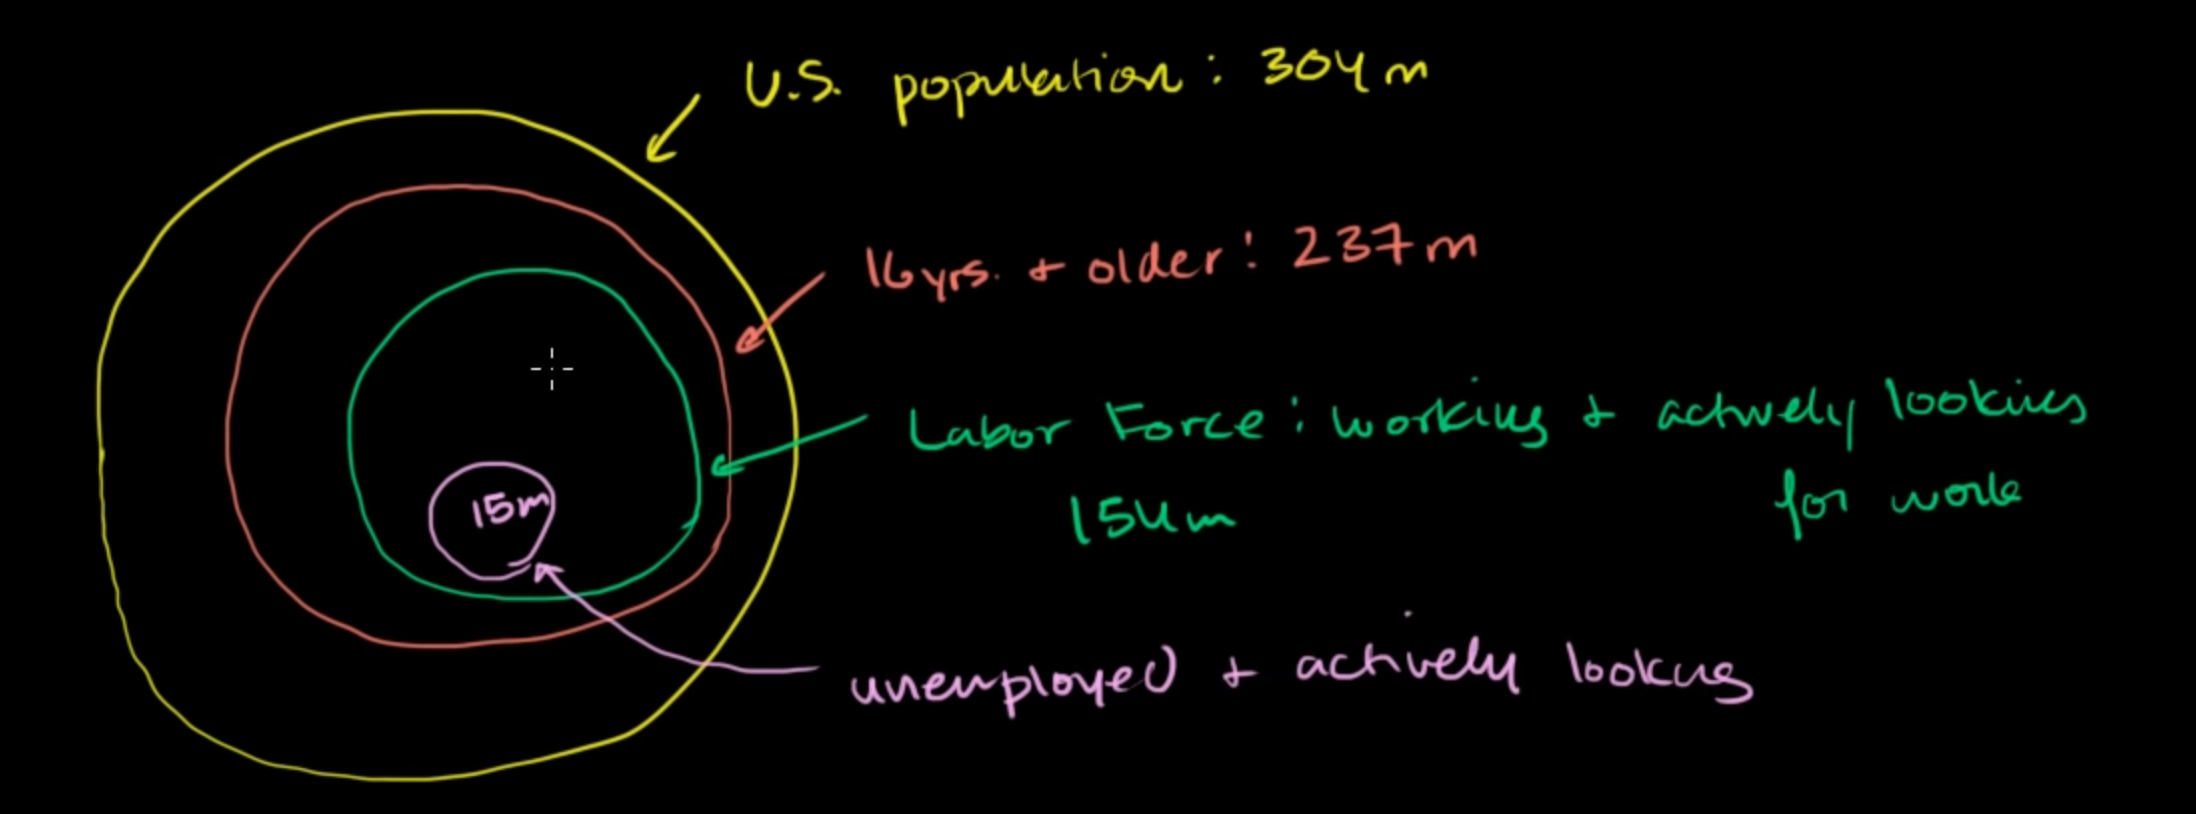 U.S. population: 304m
16yrs. + older: 237m
Labor Force: working + actively looking
for work
154m
15m
unemployed + actively looking